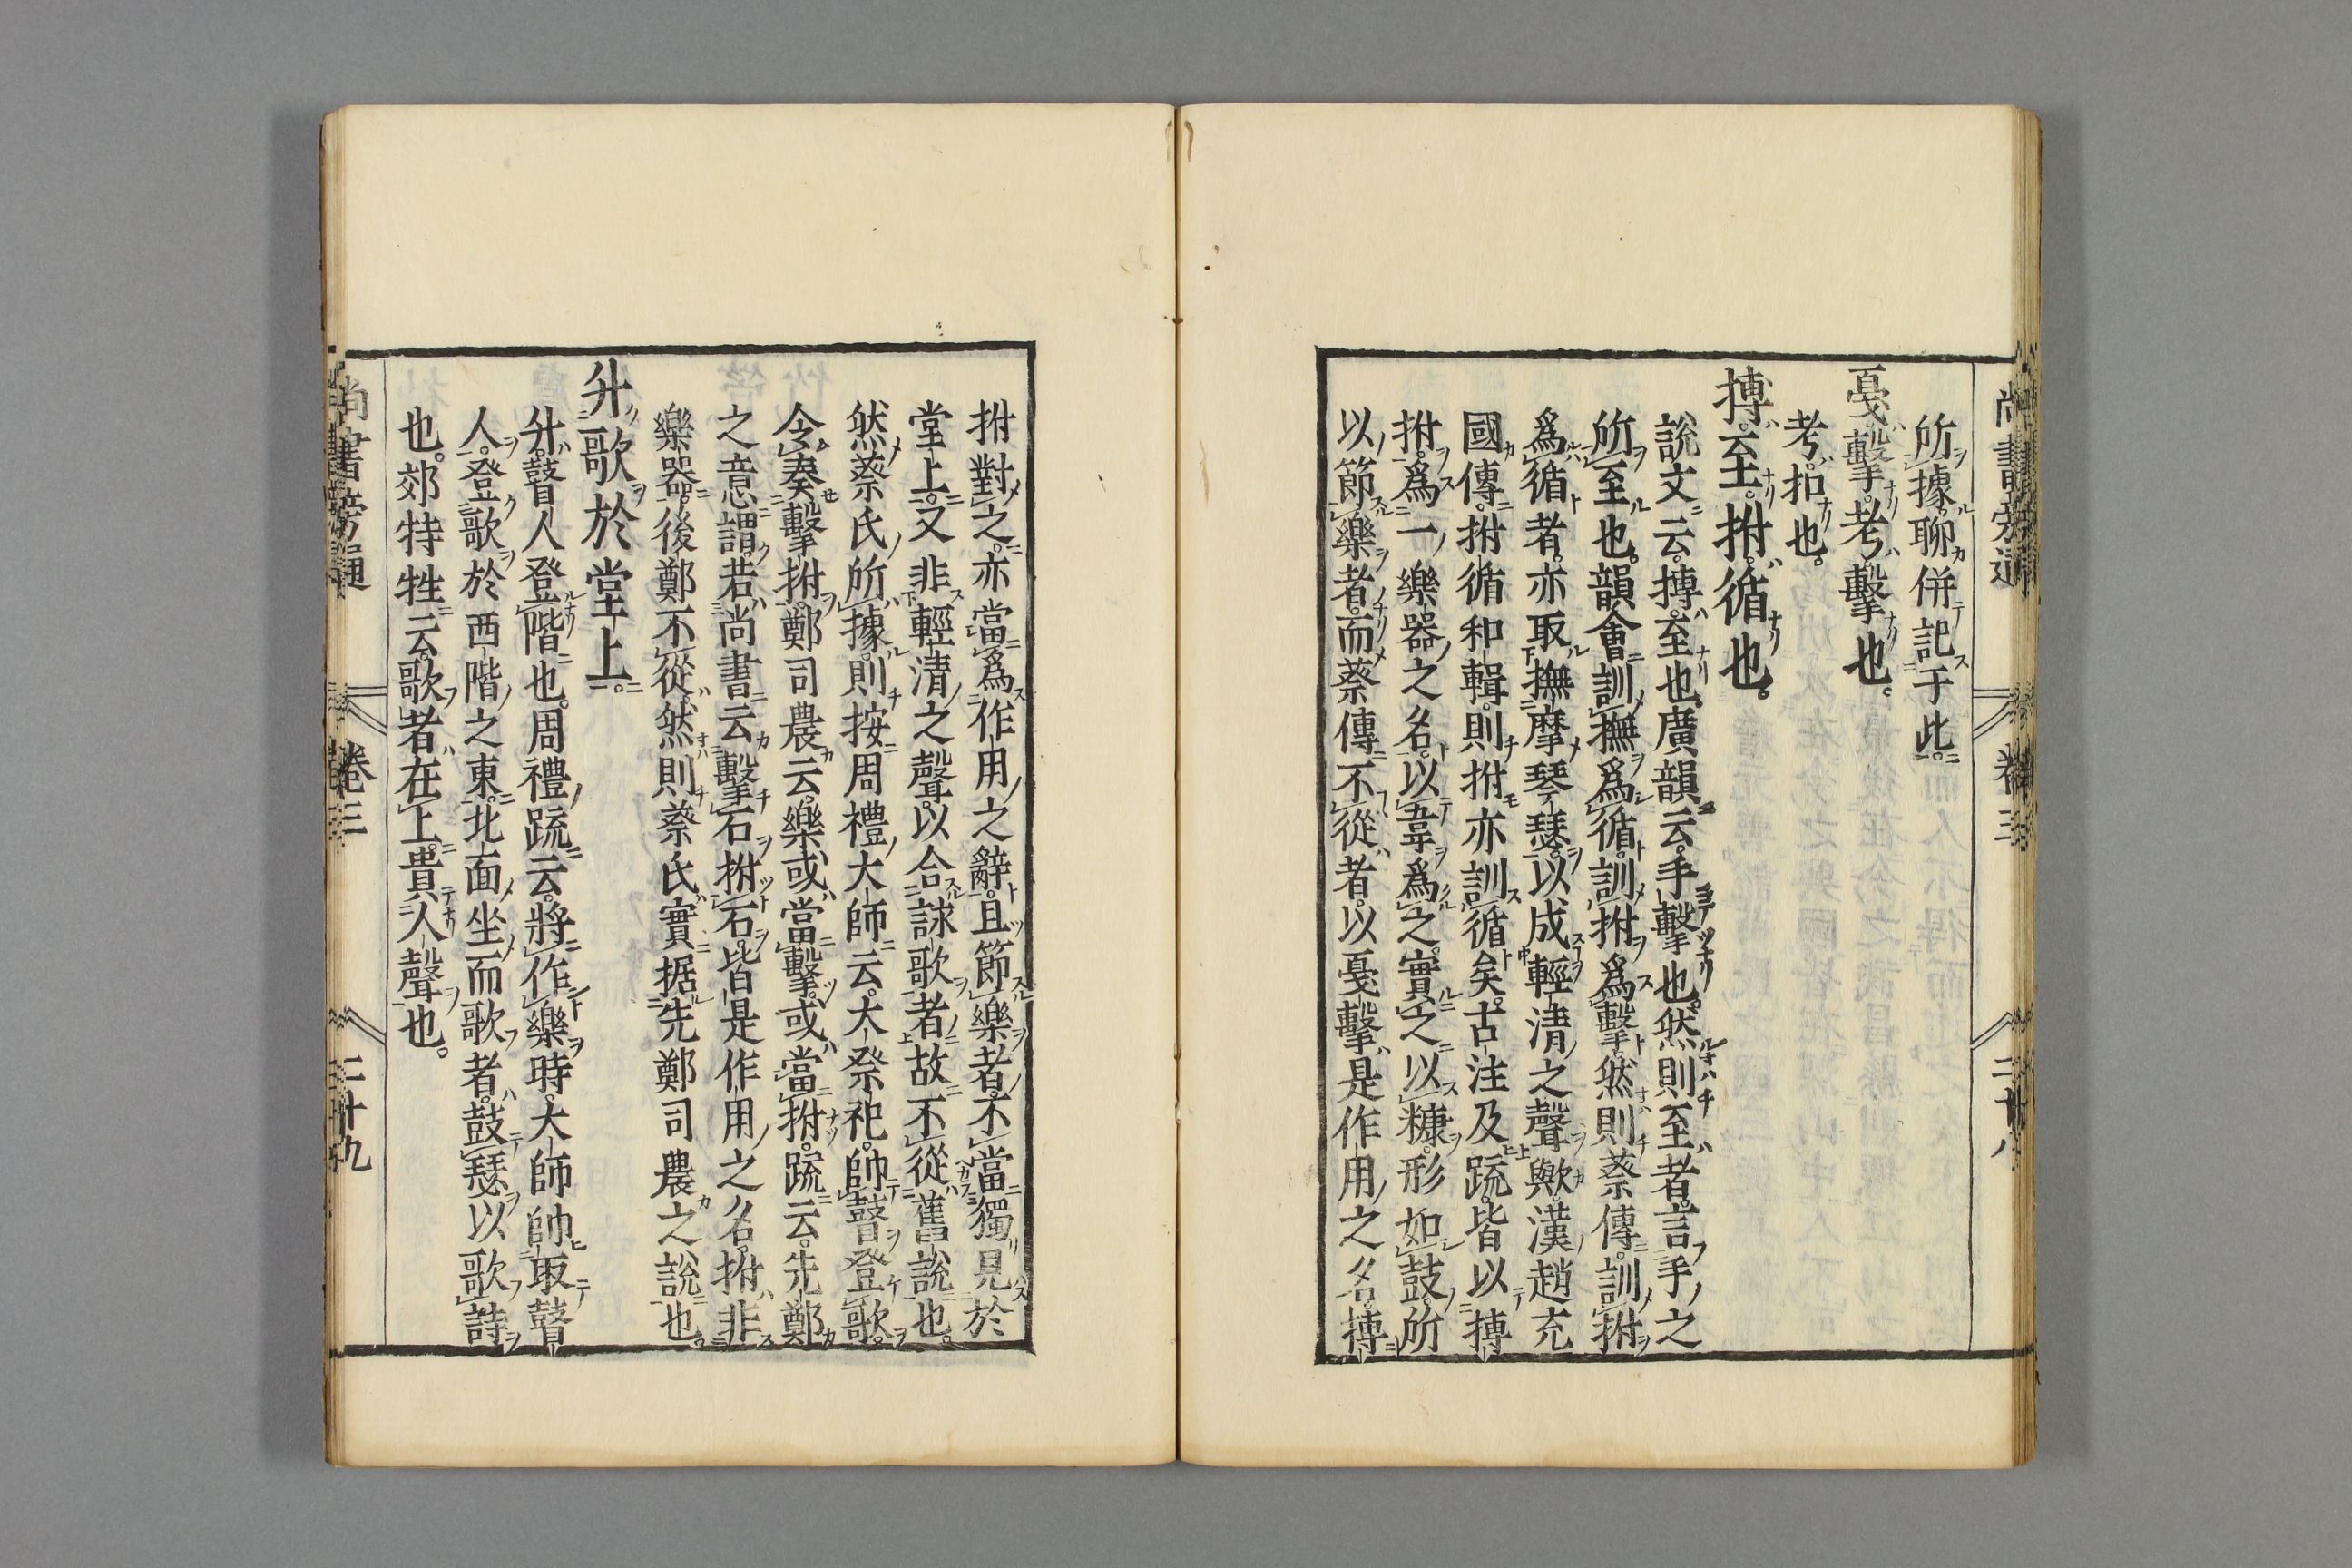 所據。聊併記于此。
戞擊。考擊也。
考。扣也。
搏。云至。拊。循也。
說文云。搏。至也。廣韻云。手擊也。然則至者。言手之
所至也。韻會訓撫爲循。訓拊爲擊。然則蔡傳。訓拊
爲循者。亦取撫摩琴瑟。以成輕清之聲歟。漢趙充
國傳。拊循和輯。則拊亦訓循矣。古注及疏。皆以搏
拊。爲一樂器之名。以韋爲之。實之以糠。形如鼓。所
以節樂者。而蔡傳不從者。以戞擊是作用之名。搏
拊對之。亦當爲作用之辭。且節樂者。不當獨見於
堂上。又非輕清之聲。以合詠歌者。故不從舊說也。
然蔡氏所據。則按周禮大師云。大祭祀。帥瞽登歌。
令奏擊拊。鄭司農云。樂或當擊。或當拊。疏云。先鄭
之意。謂若尚書云擊石拊石。皆是作用之名。拊非
樂器。後鄭不從。然則蔡氏實据先鄭司農之說也。
升歌於堂上。
升。瞽人登階也。周禮疏云。將作樂時。大師帥取瞽
人。登歌於西階之東。北面坐而歌者。鼓瑟以歌詩
也。郊特牲云。歌者在上。貴人聲也。
尚書旁通
卷三
二十九